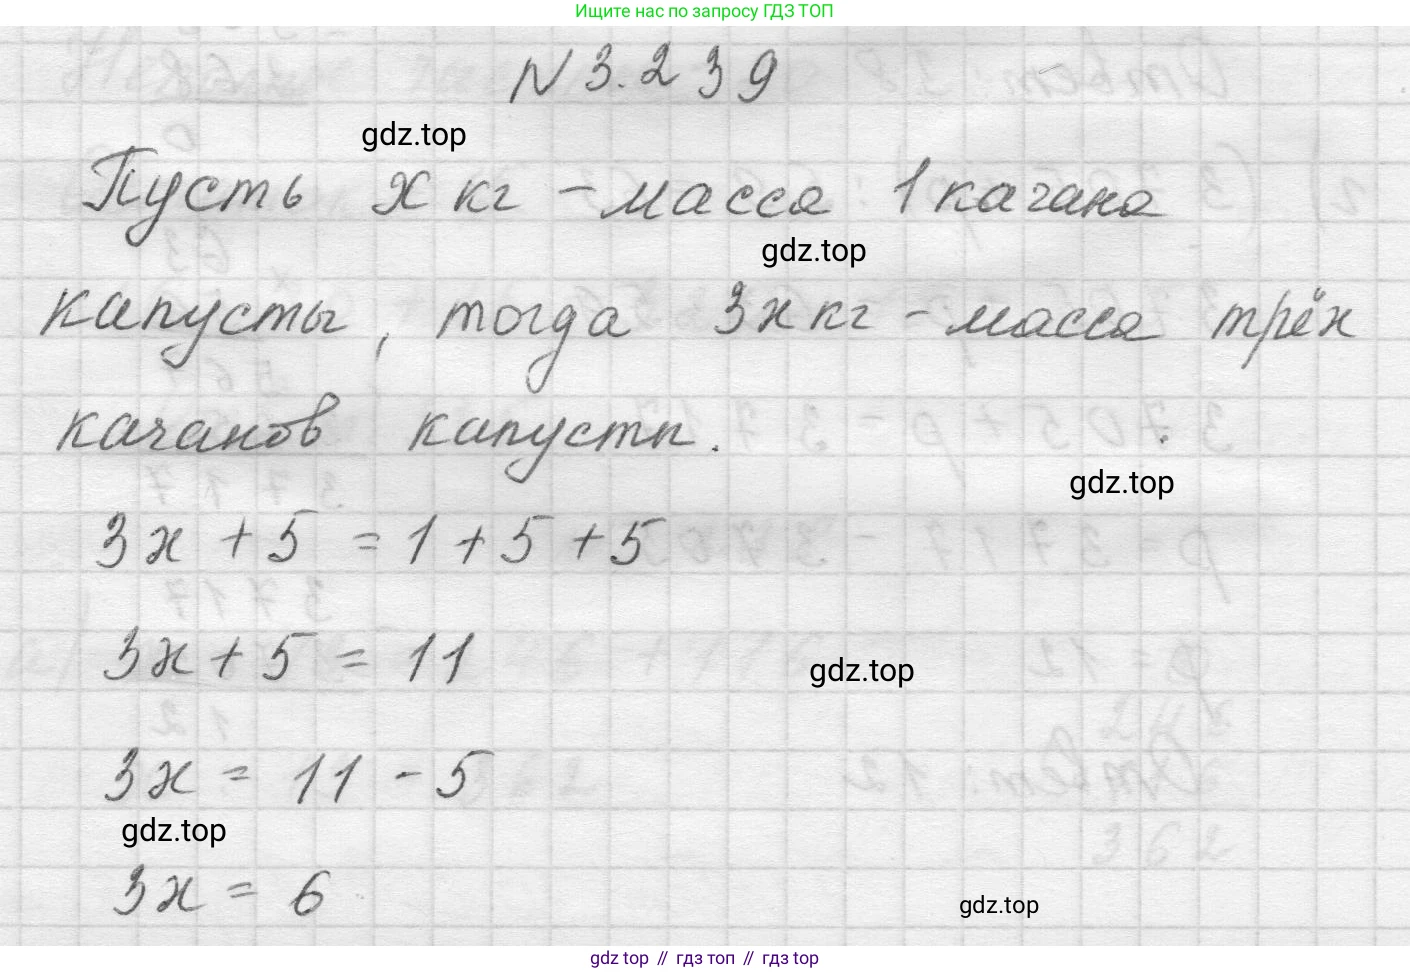 Ищите нас по запросу ГДЗ ТОП
N 3.239
gdz.top
Пусть x кг – масса 1 качана
gdz.top
капусты, тогда 3x кг – масса трёх
качанов капусты.
gdz.top
3x + 5 = 1 + 5 + 5
3x + 5 = 11
gdz.top
3x = 11 - 5
gdz.top
3x = 6
gdz.top
gdz top // гдз топ // gdz top